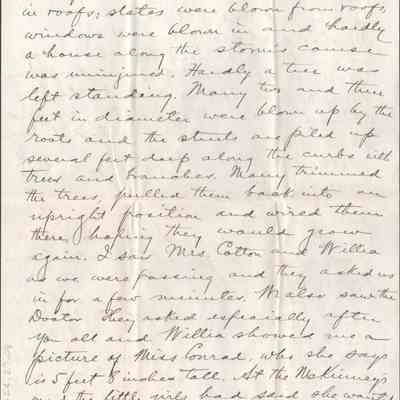 in roofs; slates were blown from roofs,
windows were blown in and hardly
a house along the storm's course
was uninjured. Hardly a tree was
left standing. Many two and three
feet in diameter were blown up by the
roots and the streets are piled up
several feet deep along the curbs with
trees and branches. Many trimmed
the trees, pulled them back into an
upright position and wired them
there, hoping they would grow
again. I saw Mrs. Cotton and Willia
as we were passing and they asked us
in for a few minutes. We also saw the
Doctor. They asked especially after
you all and Willia showed me a
picture of Miss Conrad, who she says
is 5 feet 8 inches tall. At the McKinney's
and the little girls had said she wants